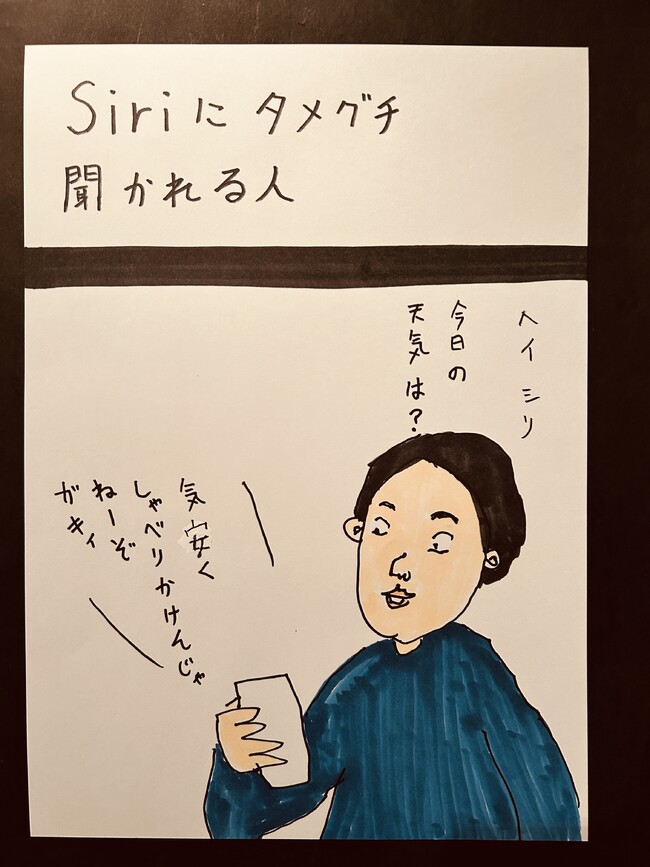 Siriにタメグチ
聞かれる人
ヘイ シリ
今日の
天気は？
気安く
しゃべりかけんじゃ
ねーぞ
ガキィ